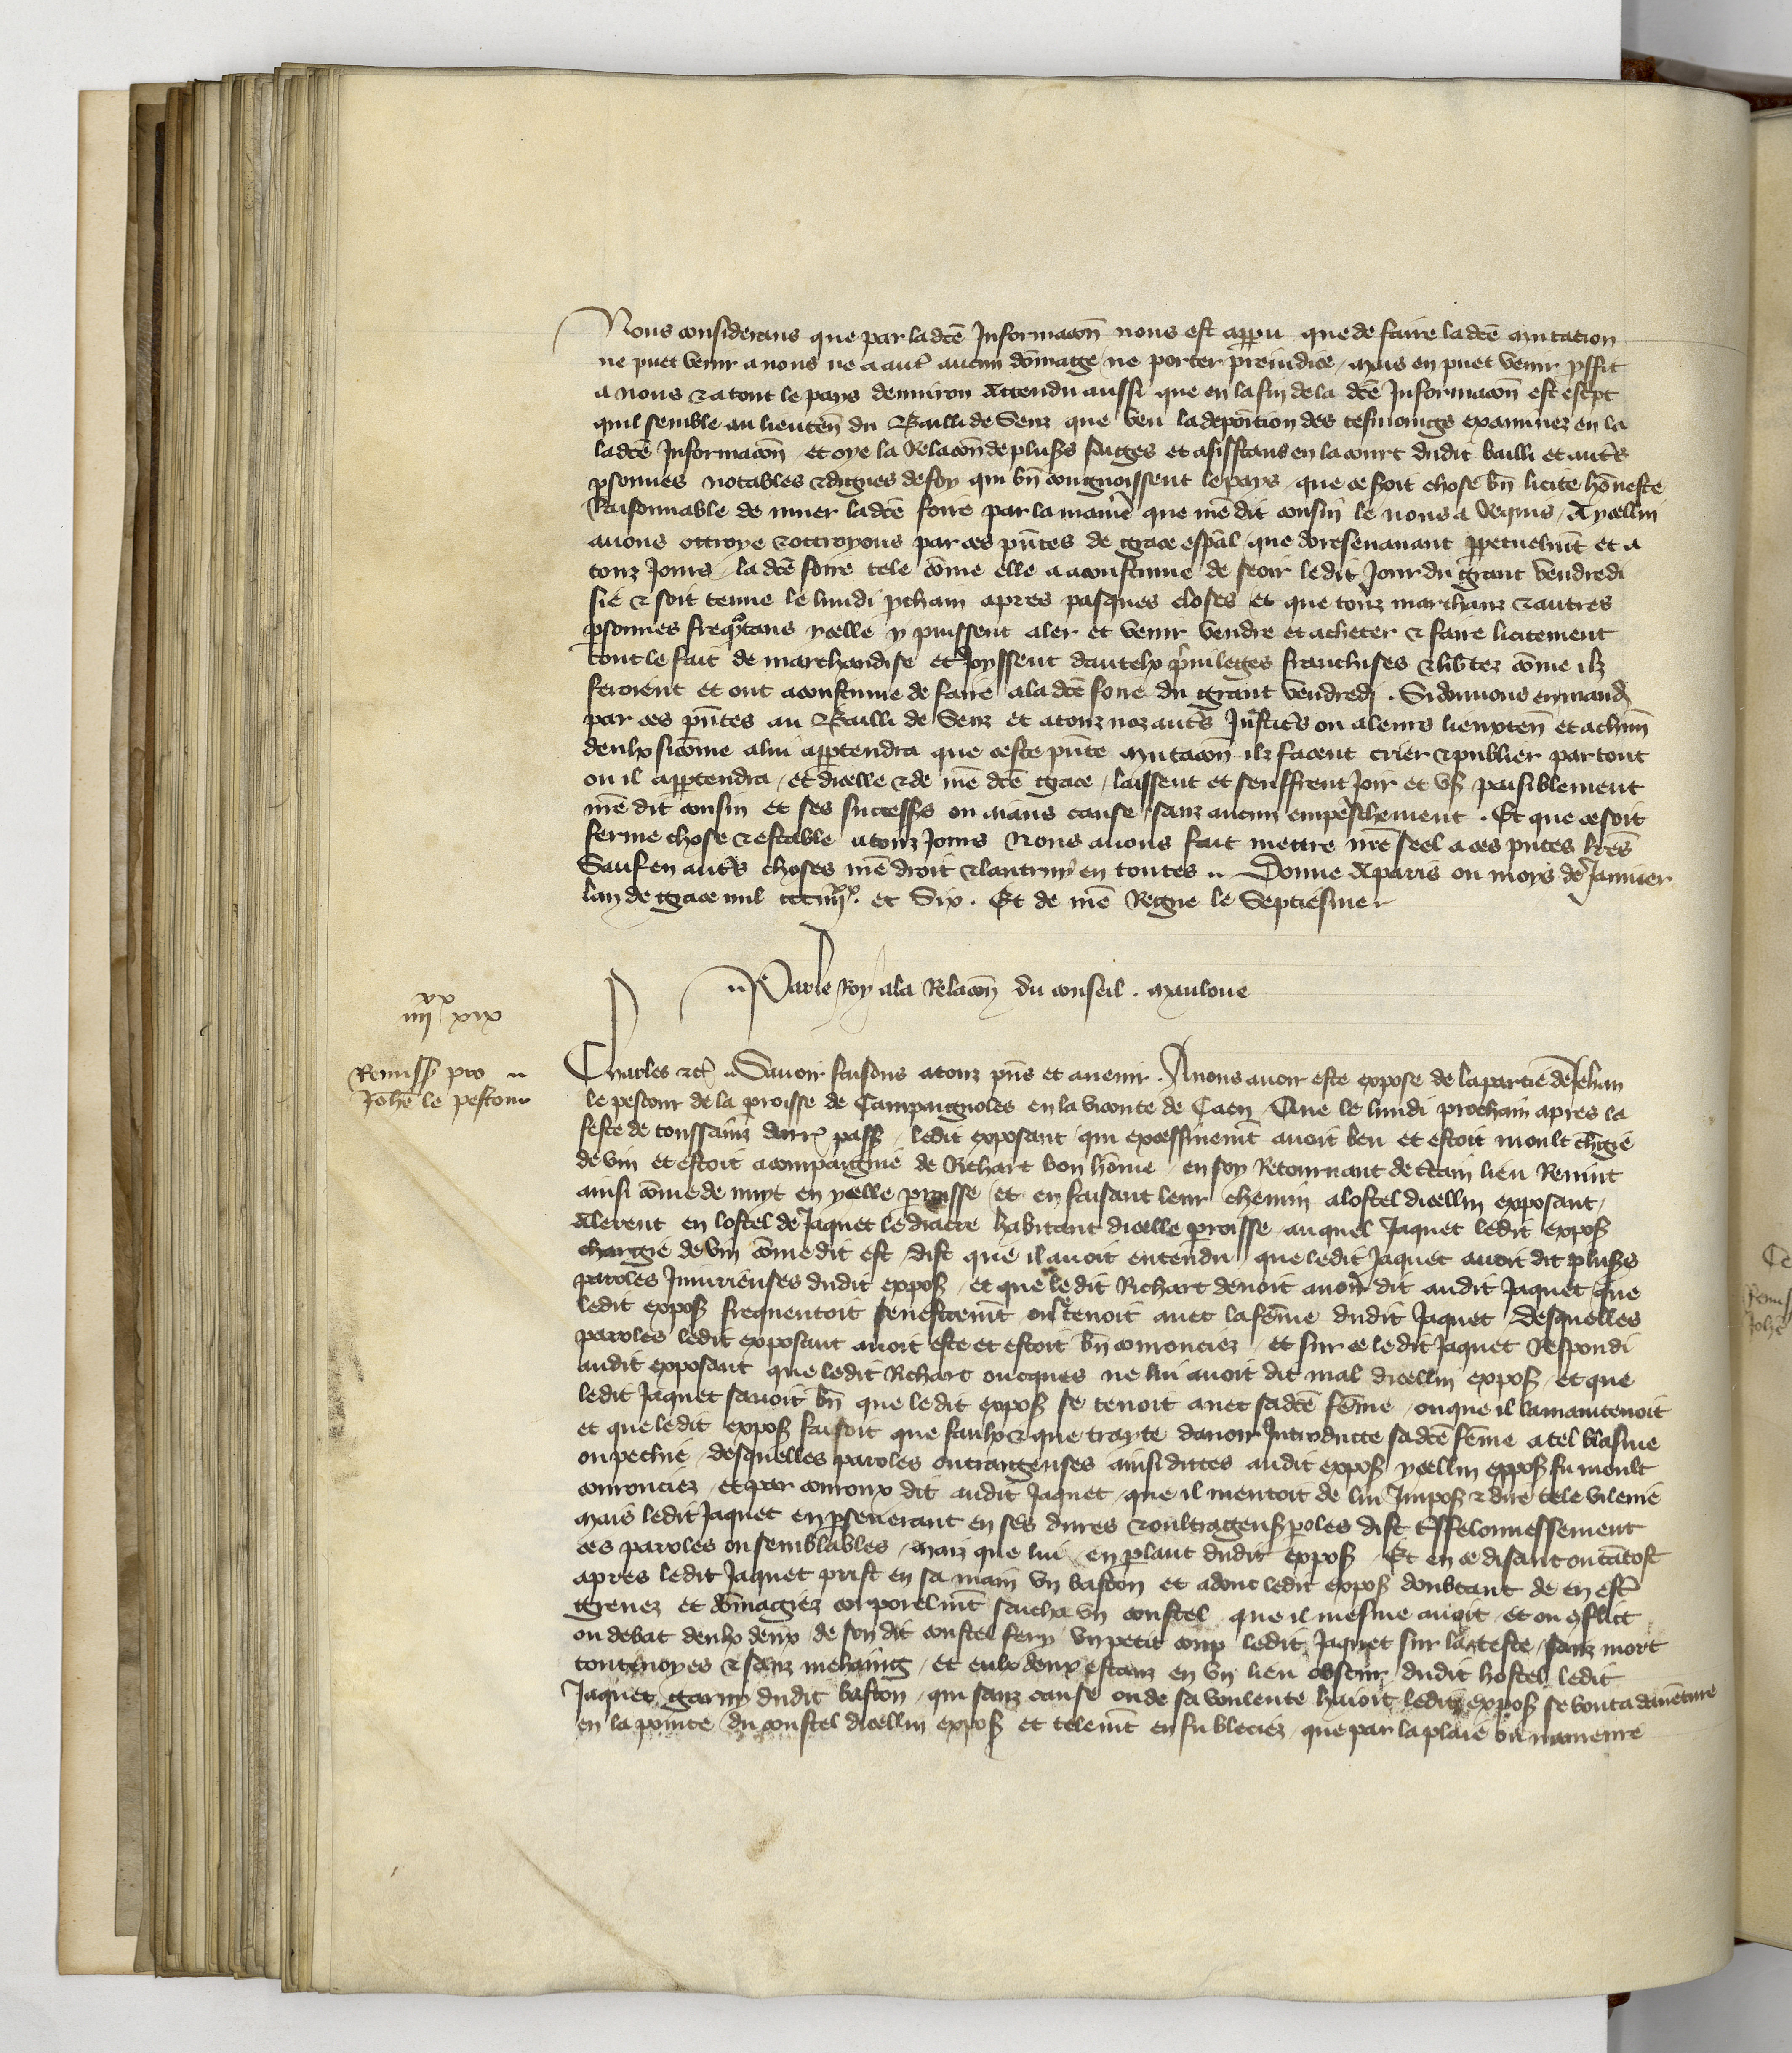 Nous considerans que par ladcē Informacōn nous est apparu que de faire ladcē mutacion
ne puet venir a nous ne a autr̄ aucun dōmage ne porter preiudice / mais en puet venir prffit
a nous & a tout le pays denuiron Attendu aussi que en la fin de la dcē Informacōn est escpt
quil semble au lieuteñ du Bailli de Senz que veu la depoītion des tesmoings examinez en la
ladcē Informacōn et oye la Relacōn de plus̄s sages et assistans en la court dudit bailli et aut̄s
psonnes notables & dignes de foy qui bn̄ congnoissent le pays que ce soit chose bn̄ licite hōneste
Raisonnable de muer ladcē foire par la manie que nr̄e dit cousin le nous a Requis / A ycellui
auons ottroye & ottroyons par ces pn̄tes de grace esp̄al que doresenauant ppetuelmt̄ et a
touz Jours / la dcē foire tele cōme elle a acoustume de seoir ledit Jour du grant vendredi
sie & soit tenue le lundi pchain apres pasques closes et que touz marchanz & autres
psonnes freqntans ycelle y puissent aler et venir vendre et acheter & faire licitement
tout le fait de marchandise et Joyssent dautelx p̄uileges franchises & lib̄tez cōme ilz
feroient et ont acoustume de faire a la dcē foire du grant vendredi . Si donnons en mand̄
par ces pn̄tes au Bailli de Senz et a touz noz aut̄s Justic̄s ou a leurs lieuxteñ et a chūn
deulx sicōme a lui appertendra que ceste pn̄te mutacōn ilz facent crier & publier par tout
ou il appertendra / et dicelle & de nr̄e dcē grace / laissent et seuffrent Joir et vs̄ paisiblement
nr̄e dit cousin et ses success̄s ou aians cause sanz aucun empeschement . Et que ce soit
ferme chose & estable a touz Jours Nous auons fait mettre nr̄e seel a ces pn̄tes lr̄es
Sauf en aut̄s choses nr̄e droit & lautruy en toutes .. Donne A paris ou moys de Januier
lan de grace mil ccc iiijxx. et Six . Et de nr̄e Regne le Septiesme
.. Par le Roy a la Relacōn du conseil . Mauloue
iiijxx xix
Remiss̄ pro ..
Johē le pestour
Charles &c̄ .. Sauoir faisons a touz pn̄s et auenir . A nous auoir este expose de la partie de Jehan
le pestour de la proisse de Campaignoles en la viconte de Caen / Que le lundi prochain apres la
feste de toussains derr̄ pass̄ / ledit exposant qui excessiuemt̄ auoit beu et estoit moult ch̄gie
de vin et estoit acompaignie de Richart bon hōme / en soy Retournant de c̄tain lieu Reuint
ainsi cōme de nuyt en ycelle proisse et en faisant leur chemin a lostel dicellui exposant /
Alerent en lostel de Jaquet le diacre habitant dicelle proisse auquel Jaquet ledit expos̄
chargie de vin cōme dit est / dist que il auoit entendu que ledit Jaquet auoit dit plus̄s
paroles Iniurieuses dudit expos̄ / et que ledit Richart deuoit auoir dit audit Jaquet que
ledit expos̄ frequentoit senestremt̄ ou se tenoit auec la fēme dudit Jaquet Desquelles
paroles ledit exposant auoit este et estoit bn̄ courouciez / et sur ce ledit Jaquet Respondi
audit exposant que ledit Richart oncques ne lui auoit dit mal dicellui expos̄ / et que
ledit Jaquet sauoit bn̄ que ledit expos̄ se tenoit auec sadcē fēme / ou que il la maintenoit
et que ledit expos̄ faisoit que faulx & que traytr̄e dauoir Introducte sadcē fēme a tel blasme
ou pechie / desquelles paroles outrageuses ainsi dictes audit expos̄ ycellui expos̄ fu moult
courouciez / et par couroux dit audit Jaquet / que il mentoit de lui Impos̄ & dire tele vilenie
Mais ledit Jaquet en pseuerant en ses dures & oultrageus̄ poles dist tresfelonnessement
ces paroles ou semblables / Maiz que lui en plant dudit expos̄ Et en ce disant ou tātost
apres ledit Jaquet prist en sa main vn baston et adonc ledit expos̄ doubtant de en estr̄
greuez et dōmagiez corporelmt̄ sacha vn coustel que il mesme auoit et ou conflict
ou debat deulx deux de son dit coustel fery vn petit coup ledit Jaquet sur la teste / sanz mort
toutesuoyes & sanz mehaing / et eulx deux estanz en vn lieu obscur dudit hostel ledit
Jaquet garny dudit baston / qui sanz cause ou de sa voulente haioit ledit expos̄ se bouta dauēture
en la pointe du coustel dicellui expos̄ et telemt̄ en fu bleciez / que par la plaie ou nameure